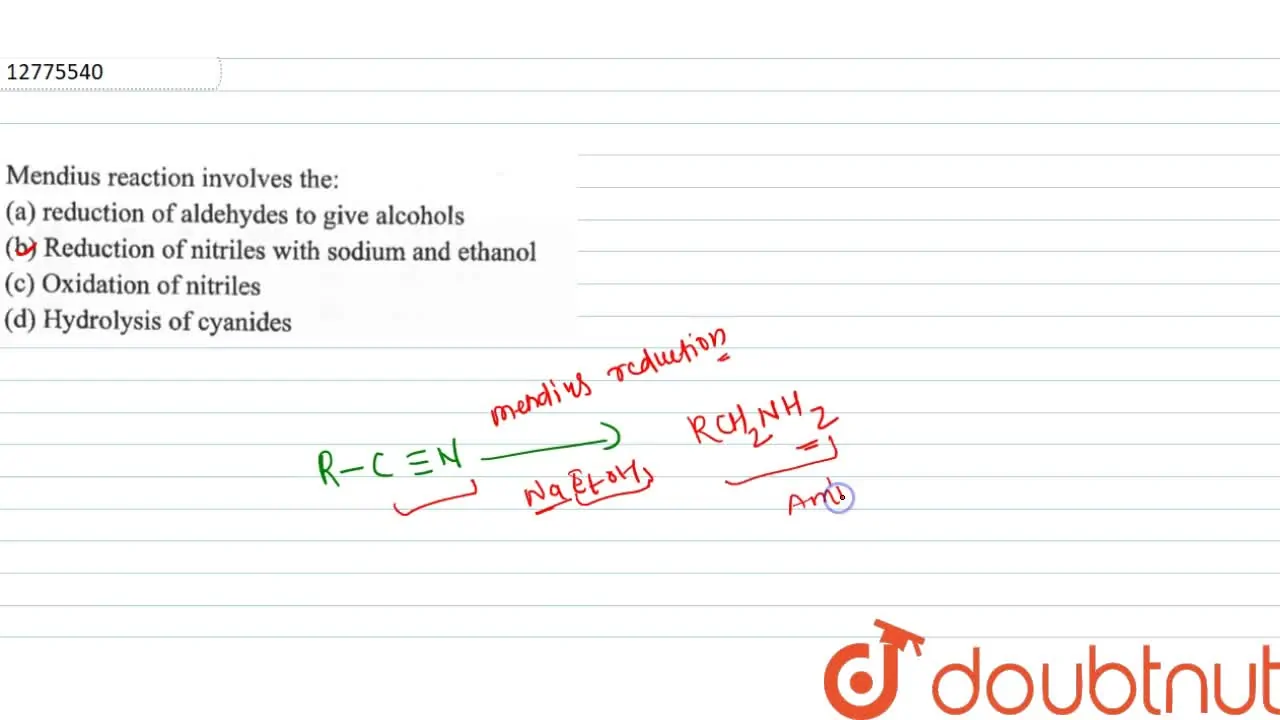 12775540
Mendius reaction involves the:
(a) reduction of aldehydes to give alcohols
(b) Reduction of nitriles with sodium and ethanol
(c) Oxidation of nitriles
(d) Hydrolysis of cyanides
mendius reduction
R-C≡N → RCH2NH2
Na EtOH
Ami
doubtnut